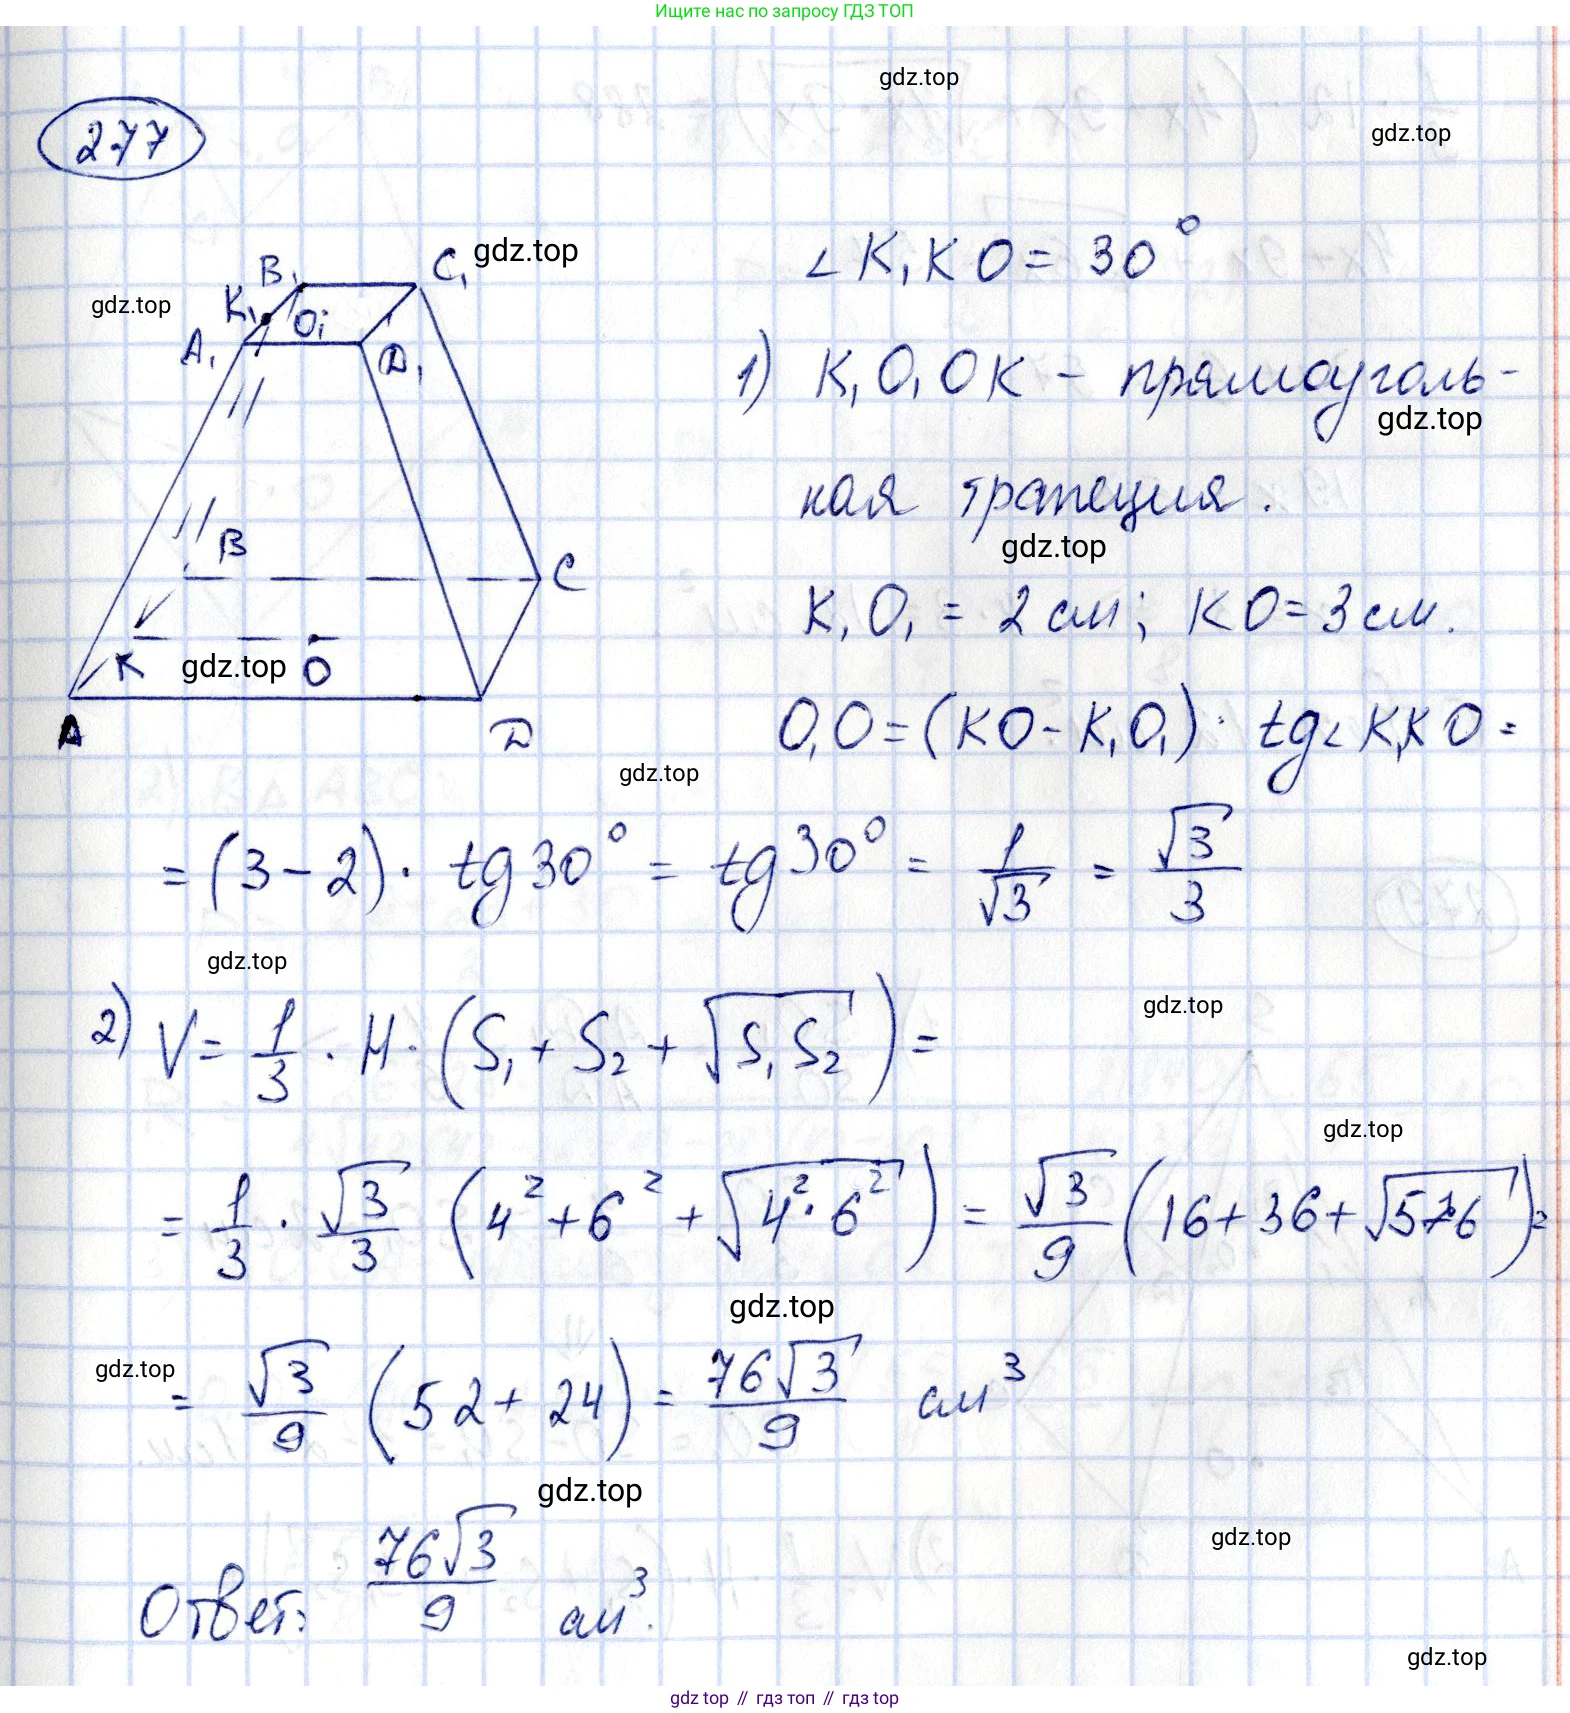 Ищите нас по запросу ГДЗ ТОП
gdz.top
gdz.top
277
∠K₁KO = 30°
B₁ C₁ gdz.top
gdz.top K₁ O₁
A₁ D₁
1) K₁O₁OK - прямоуголь-
gdz.top
ная трапеция.
gdz.top
B C
K₁O₁ = 2 см; KO = 3 см.
K gdz.top O
A D
O₁O = (KO - K₁O₁) · tg∠K₁KO =
gdz.top
= (3 - 2) · tg30° = tg30° = 1/√3 = √3/3
gdz.top
gdz.top
2) V = 1/3 · H · (S₁ + S₂ + √S₁S₂) =
gdz.top
= 1/3 · √3/3 (4² + 6² + √4² · 6²) = √3/9 (16 + 36 + √576) =
gdz.top
gdz.top
= √3/9 (52 + 24) = 76√3/9 см³
gdz.top
gdz.top
Ответ: 76√3/9 см³.
gdz.top
gdz top // гдз топ // гдз top